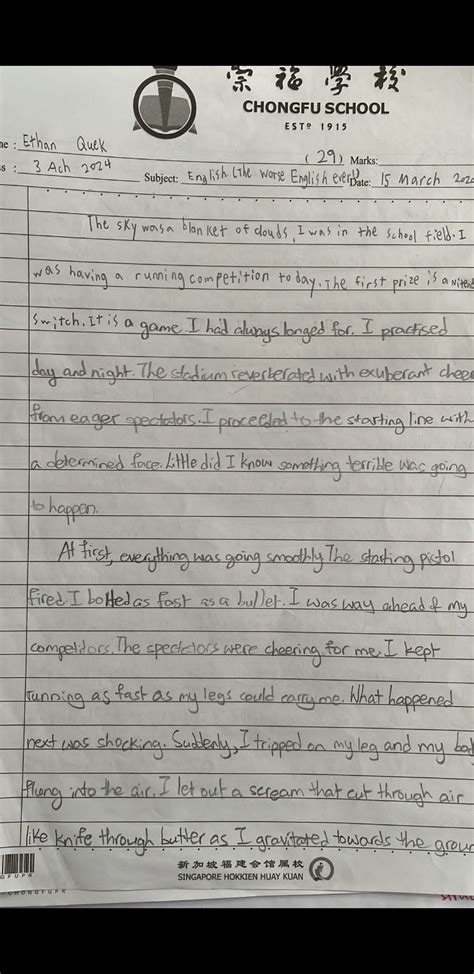 崇福學校
CHONGFU SCHOOL
ESTD 1915
me : Ethan Quek (29) Marks:
s : 3 Ach 2024 Subject: English (The worse English ever) Date: 15 March 202
The sky was a blanket of clouds, I was in the school field. I
was having a running competition today. The first prize is a
Switch. It is a game I had always longed for. I practised
day and night. The stadium reverberated with exuberant cheer
from eager spectators. I proceeded to the starting line with
a determined face. Little did I know something terrible was going
to happen.
At first, everything was going smoothly The starting pistol
fired. I bolted as fast as a bullet. I was way ahead of my
competitors. The spectators were cheering for me. I kept
running as fast as my legs could carry me. What happened
next was shocking. Suddenly, I tripped on my leg and my bod
flung into the air. I let out a scream that cut through air
like knife through butter as I gravitated towards the groun
新加坡福建会馆属校
SINGAPORE HOKKIEN HUAY KUAN